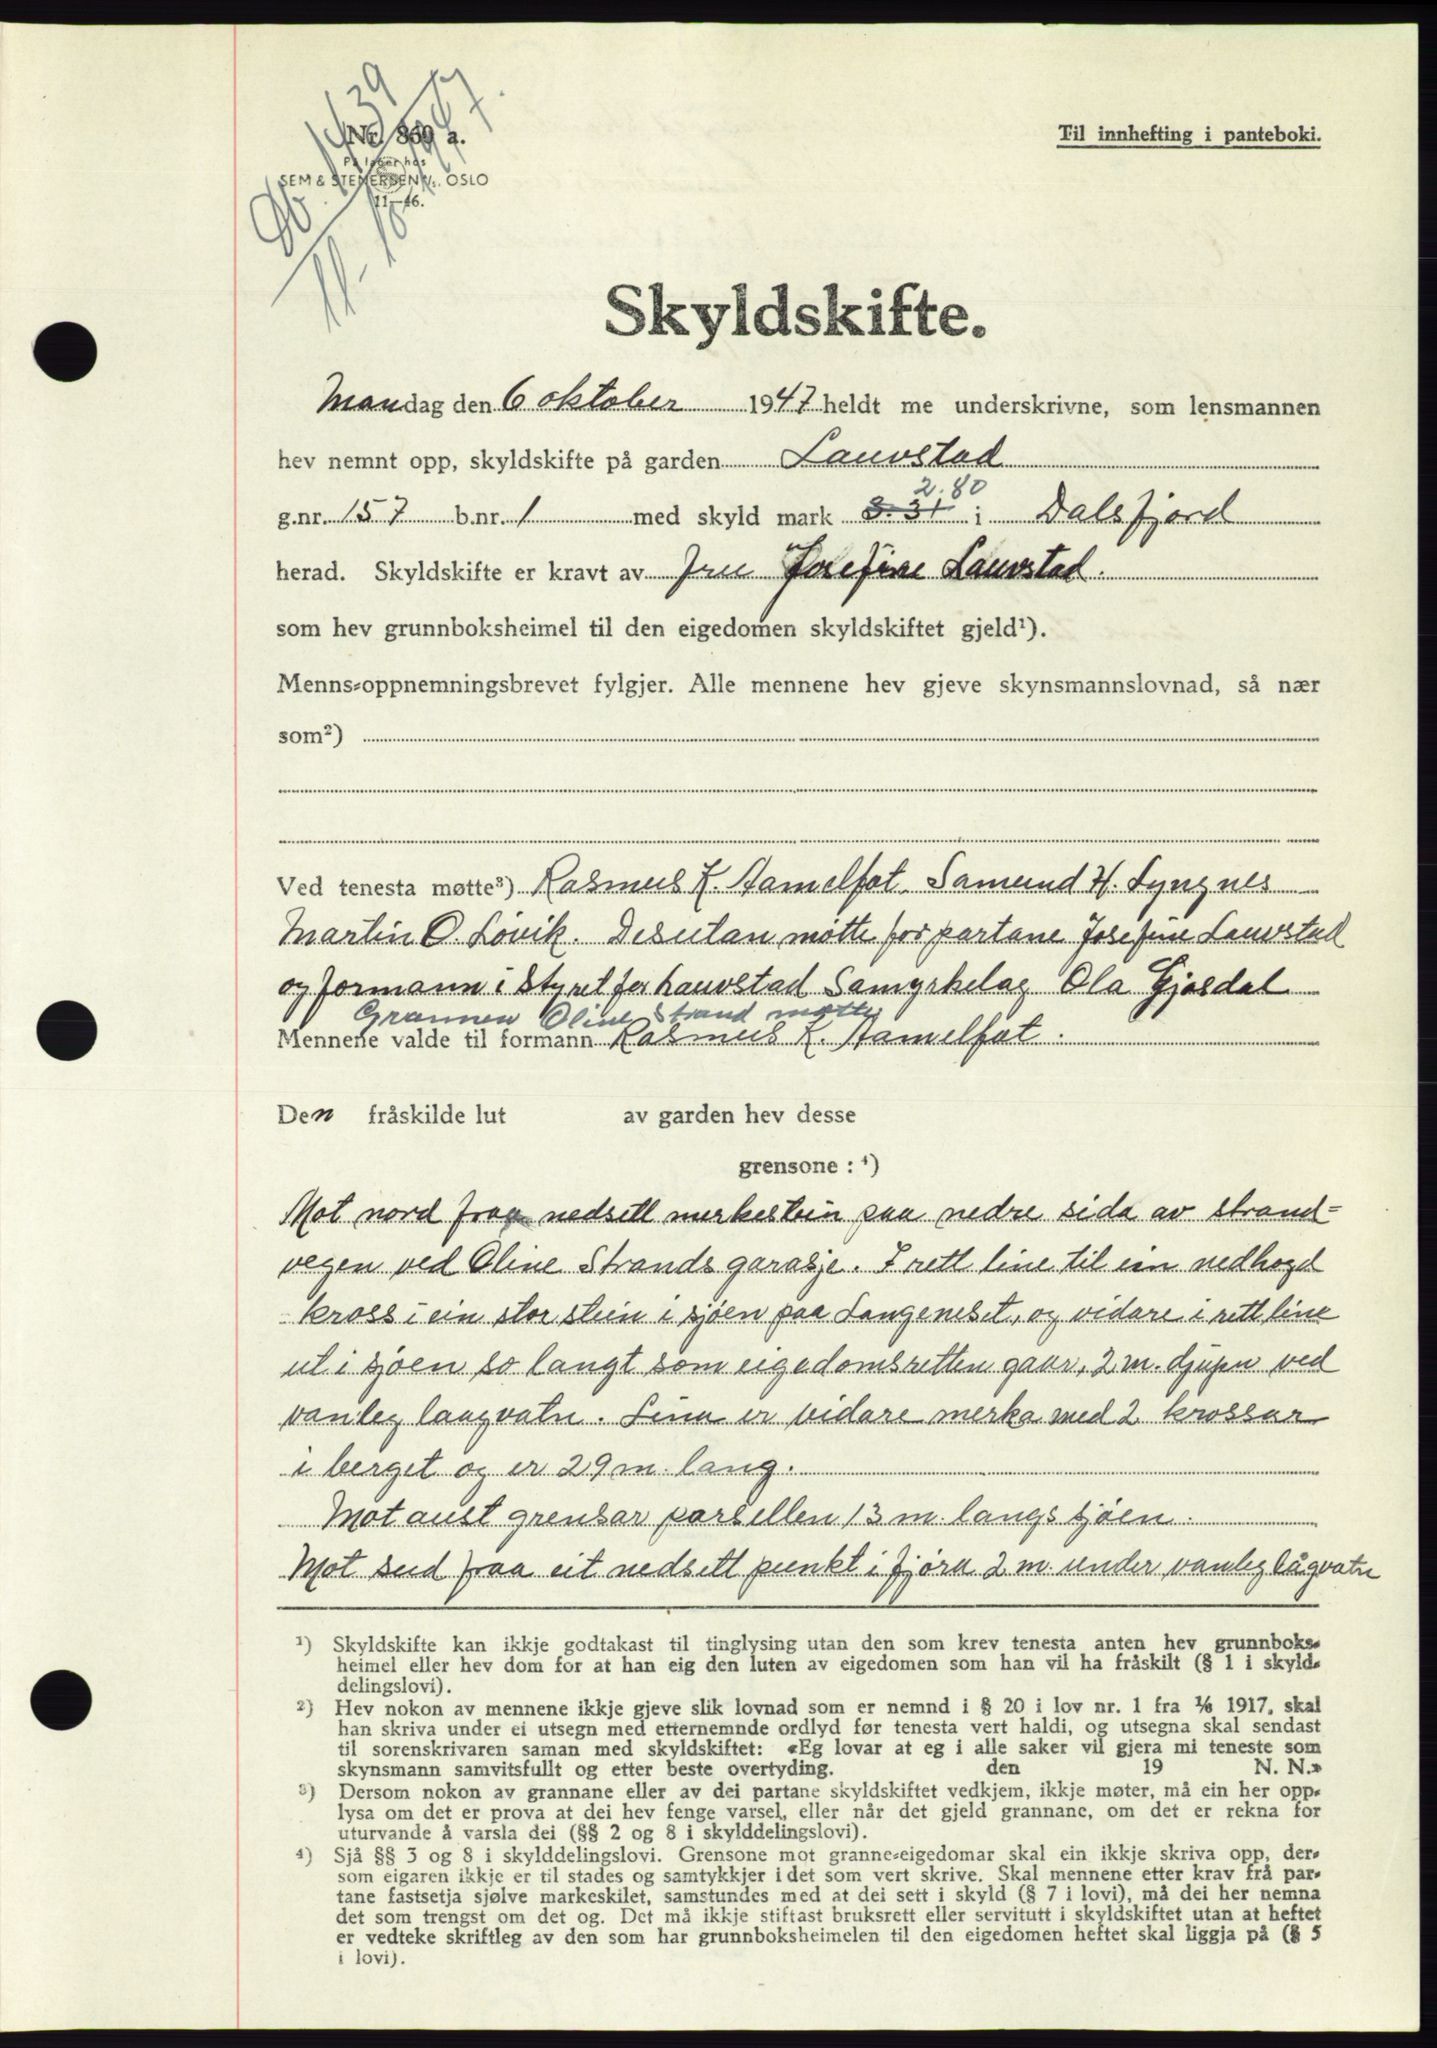 Db. 1439
11-10 1947.
Nr. 860 a.
På lager hos
SEM & STENERSEN A/S, OSLO
11—46.
Til innhefting i panteboki.
Skyldskifte.
Mandag den 6 oktober 1947 heldt me underskrivne, som lensmannen
hev nemnt opp, skyldskifte på garden Lauvstad
2.80
g.nr. 157 b.nr. 1 med skyld mark 3.31 i Dalsfjord
herad. Skyldskifte er kravt av fru Josefine Lauvstad.
som hev grunnboksheimel til den eigedomen skyldskiftet gjeld¹).
Menns-oppnemningsbrevet fylgjer. Alle mennene hev gjeve skynsmannslovnad, så nær
som²)
Ved tenesta møtte³) Rasmus K. Aamelfot. Samund H. Lyngnes
Martin O. Løvik. Desutan møtte for partane Josefine Lauvstad
og formann i styret for Lauvstad Samyrkelag Ola Gjøsdal
Grannen Oline Strand møtte
Mennene valde til formann Rasmus K. Aamelfot.
Den fråskilde lut av garden hev desse
grensone : ⁴)
Mot nord fraa nedsett merkestein paa nedre sida av strand=
vegen ved Oline Strands garasje. I rett line til ein nedhogd
kross i ein stor stein i sjøen paa Langeneset, og vidare i rett line
ut i sjøen so langt som eigedomsretten gaar, 2 m. djupn ved
vanleg laagvatn. Lina er vidare merka med 2 krossar
i berget og er 29 m. lang.
Mot aust grensar parsellen 13 m. langs sjøen.
Mot sud fraa eit nedsett punkt i fjøra 2 m. under vanleg lågvatn
¹) Skyldskifte kan ikkje godtakast til tinglysing utan den som krev tenesta anten hev grunnboks-
heimel eller hev dom for at han eig den luten av eigedomen som han vil ha fråskilt (§ 1 i skyld-
delingslovi).
²) Hev nokon av mennene ikkje gjeve slik lovnad som er nemnd i § 20 i lov nr. 1 fra 1/6 1917, skal
han skriva under ei utsegn med etternemnde ordlyd før tenesta vert haldi, og utsegna skal sendast
til sorenskrivaren saman med skyldskiftet: «Eg lovar at eg i alle saker vil gjera mi teneste som
skynsmann samvitsfullt og etter beste overtyding. den 19 N. N.»
³) Dersom nokon av grannane eller av dei partane skyldskiftet vedkjem, ikkje møter, må ein her opp-
lysa om det er prova at dei hev fenge varsel, eller når det gjeld grannane, om det er rekna for
uturvande å varsla dei (§§ 2 og 8 i skylddelingslovi).
⁴) Sjå §§ 3 og 8 i skylddelingslovi. Grensone mot granne-eigedomar skal ein ikkje skriva opp, der-
som eigaren ikkje er til stades og samtykkjer i det som vert skrive. Skal mennene etter krav frå par-
tane fastsetja sjølve markeskilet, samstundes med at dei sett i skyld (§ 7 i lovi), må dei her nemna
det som trengst om det og. Det må ikkje stiftast bruksrett eller servitutt i skyldskiftet utan at heftet
er vedteke skriftleg av den som har grunnboksheimelen til den eigedomen heftet skal liggja på (§ 5
i lovi).